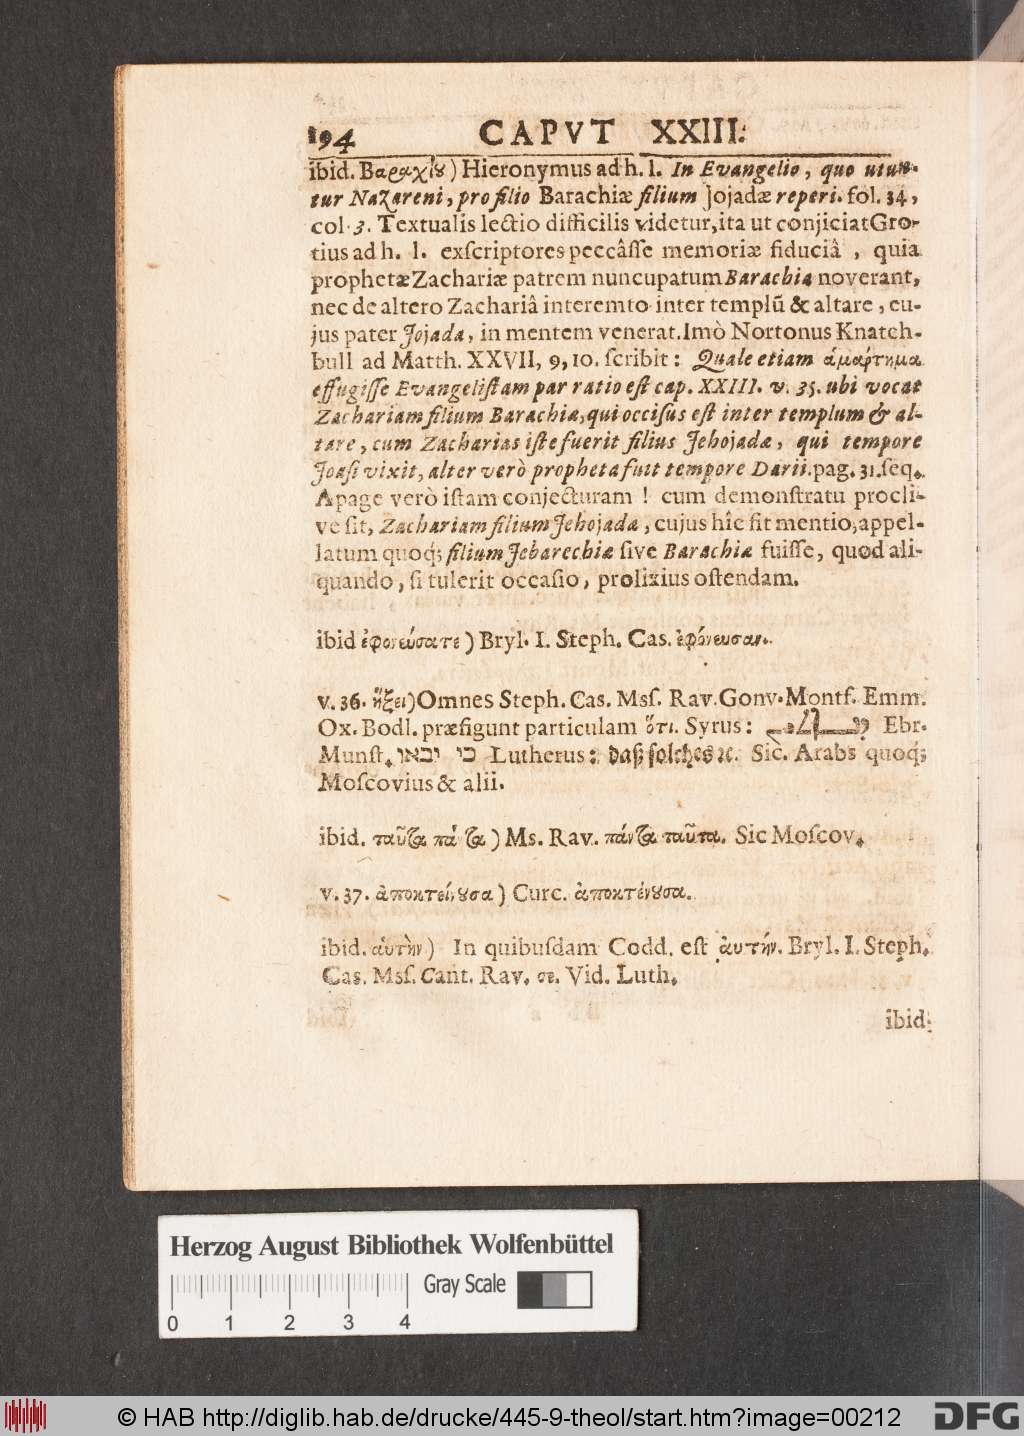 194 CAPVT XXIII.
ibid. Βαραχίȣ) Hieronymus ad h. l. In Evangelio, quo utun-
tur Nazareni, pro filio Barachiæ filium Jojadæ reperi. fol. 34,
col. 3. Textualis lectio difficilis videtur, ita ut conjiciat Gro-
tius ad h. l. exſcriptores peccâſſe memoriæ fiduciâ, quia
prophetæ Zachariæ patrem nuncupatum Barachia noverant,
nec de altero Zachariâ interemto inter templū & altare, cu-
jus pater Jojada, in mentem venerat. Imò Nortonus Knatch-
bull ad Matth. XXVII, 9, 10. ſcribit: Quale etiam ἁμάρτημα
effugiſſe Evangeliſtam par ratio eſt cap. XXIII. v. 35. ubi vocat
Zachariam filium Barachiæ, qui occiſus eſt inter templum & al-
tare, cum Zacharias iſte fuerit filius Jehojadæ, qui tempore
Joaſi vixit, alter verò propheta fuit tempore Darii. pag. 31. ſeq.
Apage verò iſtam conjecturam! cum demonſtratu procli-
ve ſit, Zachariam filium Jehojadæ, cujus hîc fit mentio, appel-
latum quoq; filium Jebarechiæ ſive Barachiæ fuiſſe, quod ali-
quando, ſi tulerit occaſio, prolixius oſtendam.
ibid ἐφονεύσατε) Bryl. I. Steph. Cas. ἐφόνευσαν.
v. 36. ἥξει) Omnes Steph. Cas. Msſ. Rav. Gonv. Montf. Emm.
Ox. Bodl. præfigunt particulam ὅτι. Syrus: Ebr.
Munſt. כי יבאו Lutherus: daß ſolches ꝛc. Sic. Arabs quoq;
Moſcovius & alii.
ibid. ταῦτα πάντα) Ms. Rav. πάντα ταῦτα. Sic Moſcov.
v. 37. ἀποκτείνȣσα) Curc. ἀποκτένȣσα.
ibid. αὑτὴν) In quibuſdam Codd. eſt ἀυτήν. Bryl. I. Steph.
Cas. Msſ. Cant. Rav. σε. Vid. Luth.
ibid.
Herzog August Bibliothek Wolfenbüttel
Gray Scale
0 1 2 3 4
© HAB http://diglib.hab.de/drucke/445-9-theol/start.htm?image=00212 DFG